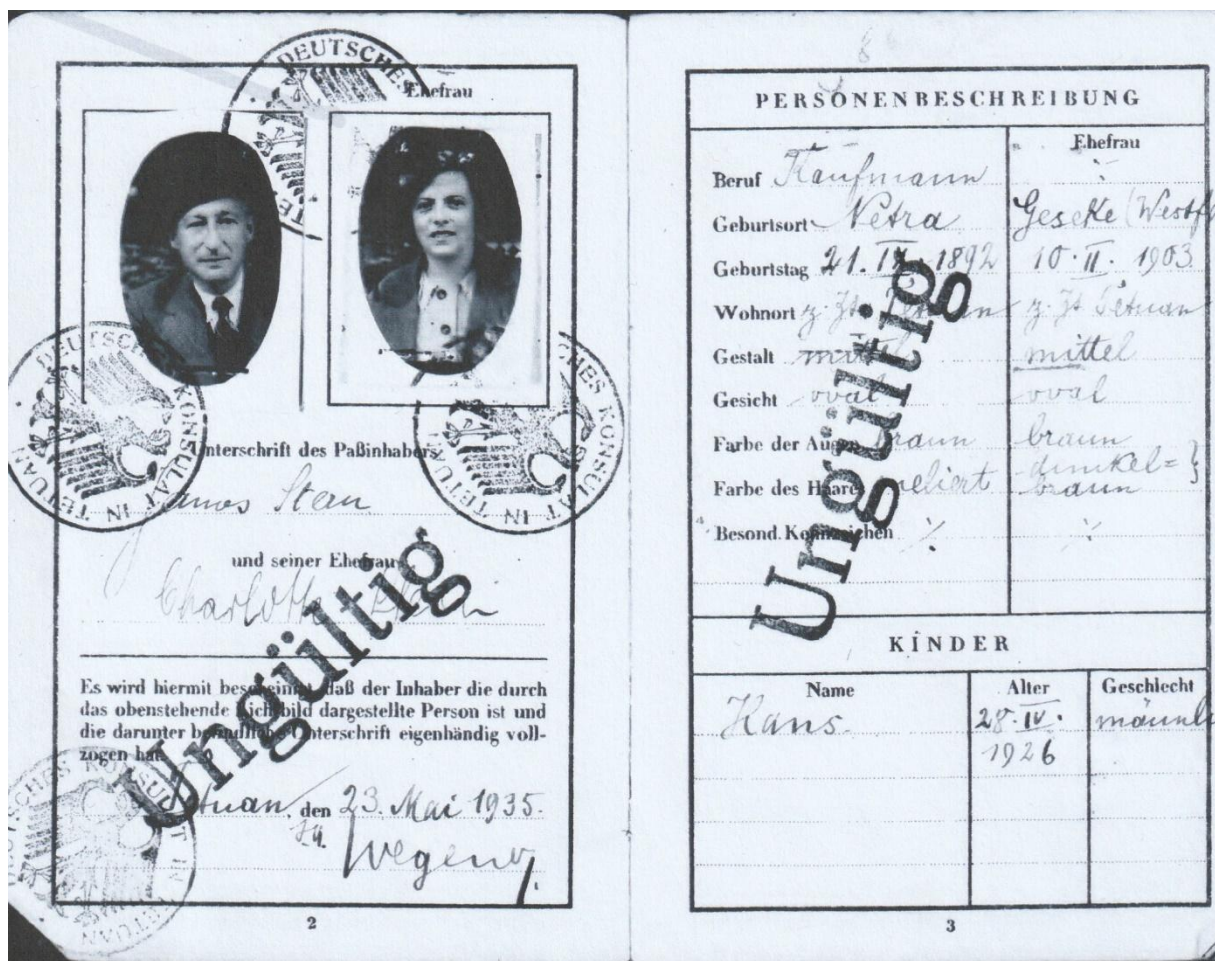 DEUTSCHES KONSULAT IN TETUAN
Ehefrau
Unterschrift des Paßinhabers
Stern
und seiner Ehefrau
Charlotte Stern
Es wird hiermit bescheinigt, daß der Inhaber die durch
das obenstehende Lichtbild dargestellte Person ist und
die darunter befindliche Unterschrift eigenhändig voll-
zogen hat.
Tetuan, den 23. Mai 1935.
Wegener
Ungültig
2
8
PERSONENBESCHREIBUNG
Ehefrau
Beruf Kaufmann
Geburtsort Netra Geseke (Westf
Geburtstag 21. IV. 1892 10. II. 1903
Wohnort z. Zt. Tetuan z. Zt Tetuan
Gestalt mittel mittel
Gesicht oval oval
Farbe der Augen braun braun
Farbe des Haares meliert dunkel=
braun
Besond. Kennzeichen
Ungültig
KINDER
Name Alter Geschlecht
Hans. 28. IV. männli
1926
3